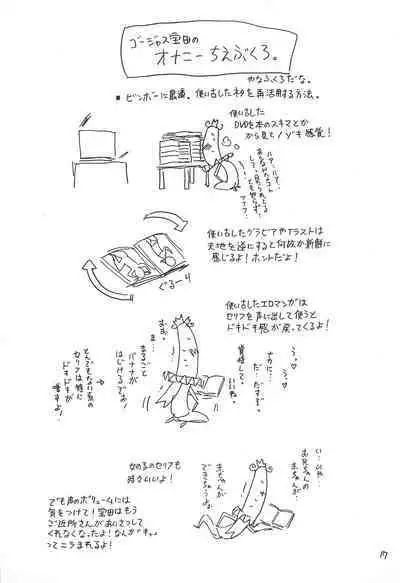 ゴージャス宝田の
オナニーちえぶくろ。
やなふくろだな。
■ビンボーに最適。使い古したネタを再活用する方法。
使い古した
DVDを本のスキマとか
から見てノゾキ感覚!
使い古したグラビアやイラストは
天地を逆にすると何故か新鮮に
感じるよ!ホントだよ!
ぐるーり
使い古したエロマンガは
セリフを声に出して使うと
ドキドキ感が戻ってくるよ!
うっ♡
うっ♡
なかに…
だ…だすぞ…
覚悟して。
いいね。
ま…
まるごと
バナナが
はじけるでぼあ!
とんでもない系の
セリフは特に
ドキドキが
増すよ!
女の子のセリフも
時々いいよ!
い…いや…
お兄ちゃんの
赤ちゃんが
赤ちゃんが
できちゃうよぉ
でも声のボリュームには
気をつけて!宝田はもう
ご近所さんがあいさつして
くれなくなったよ!なんか「キッ」
ってニラまれるよ!
17